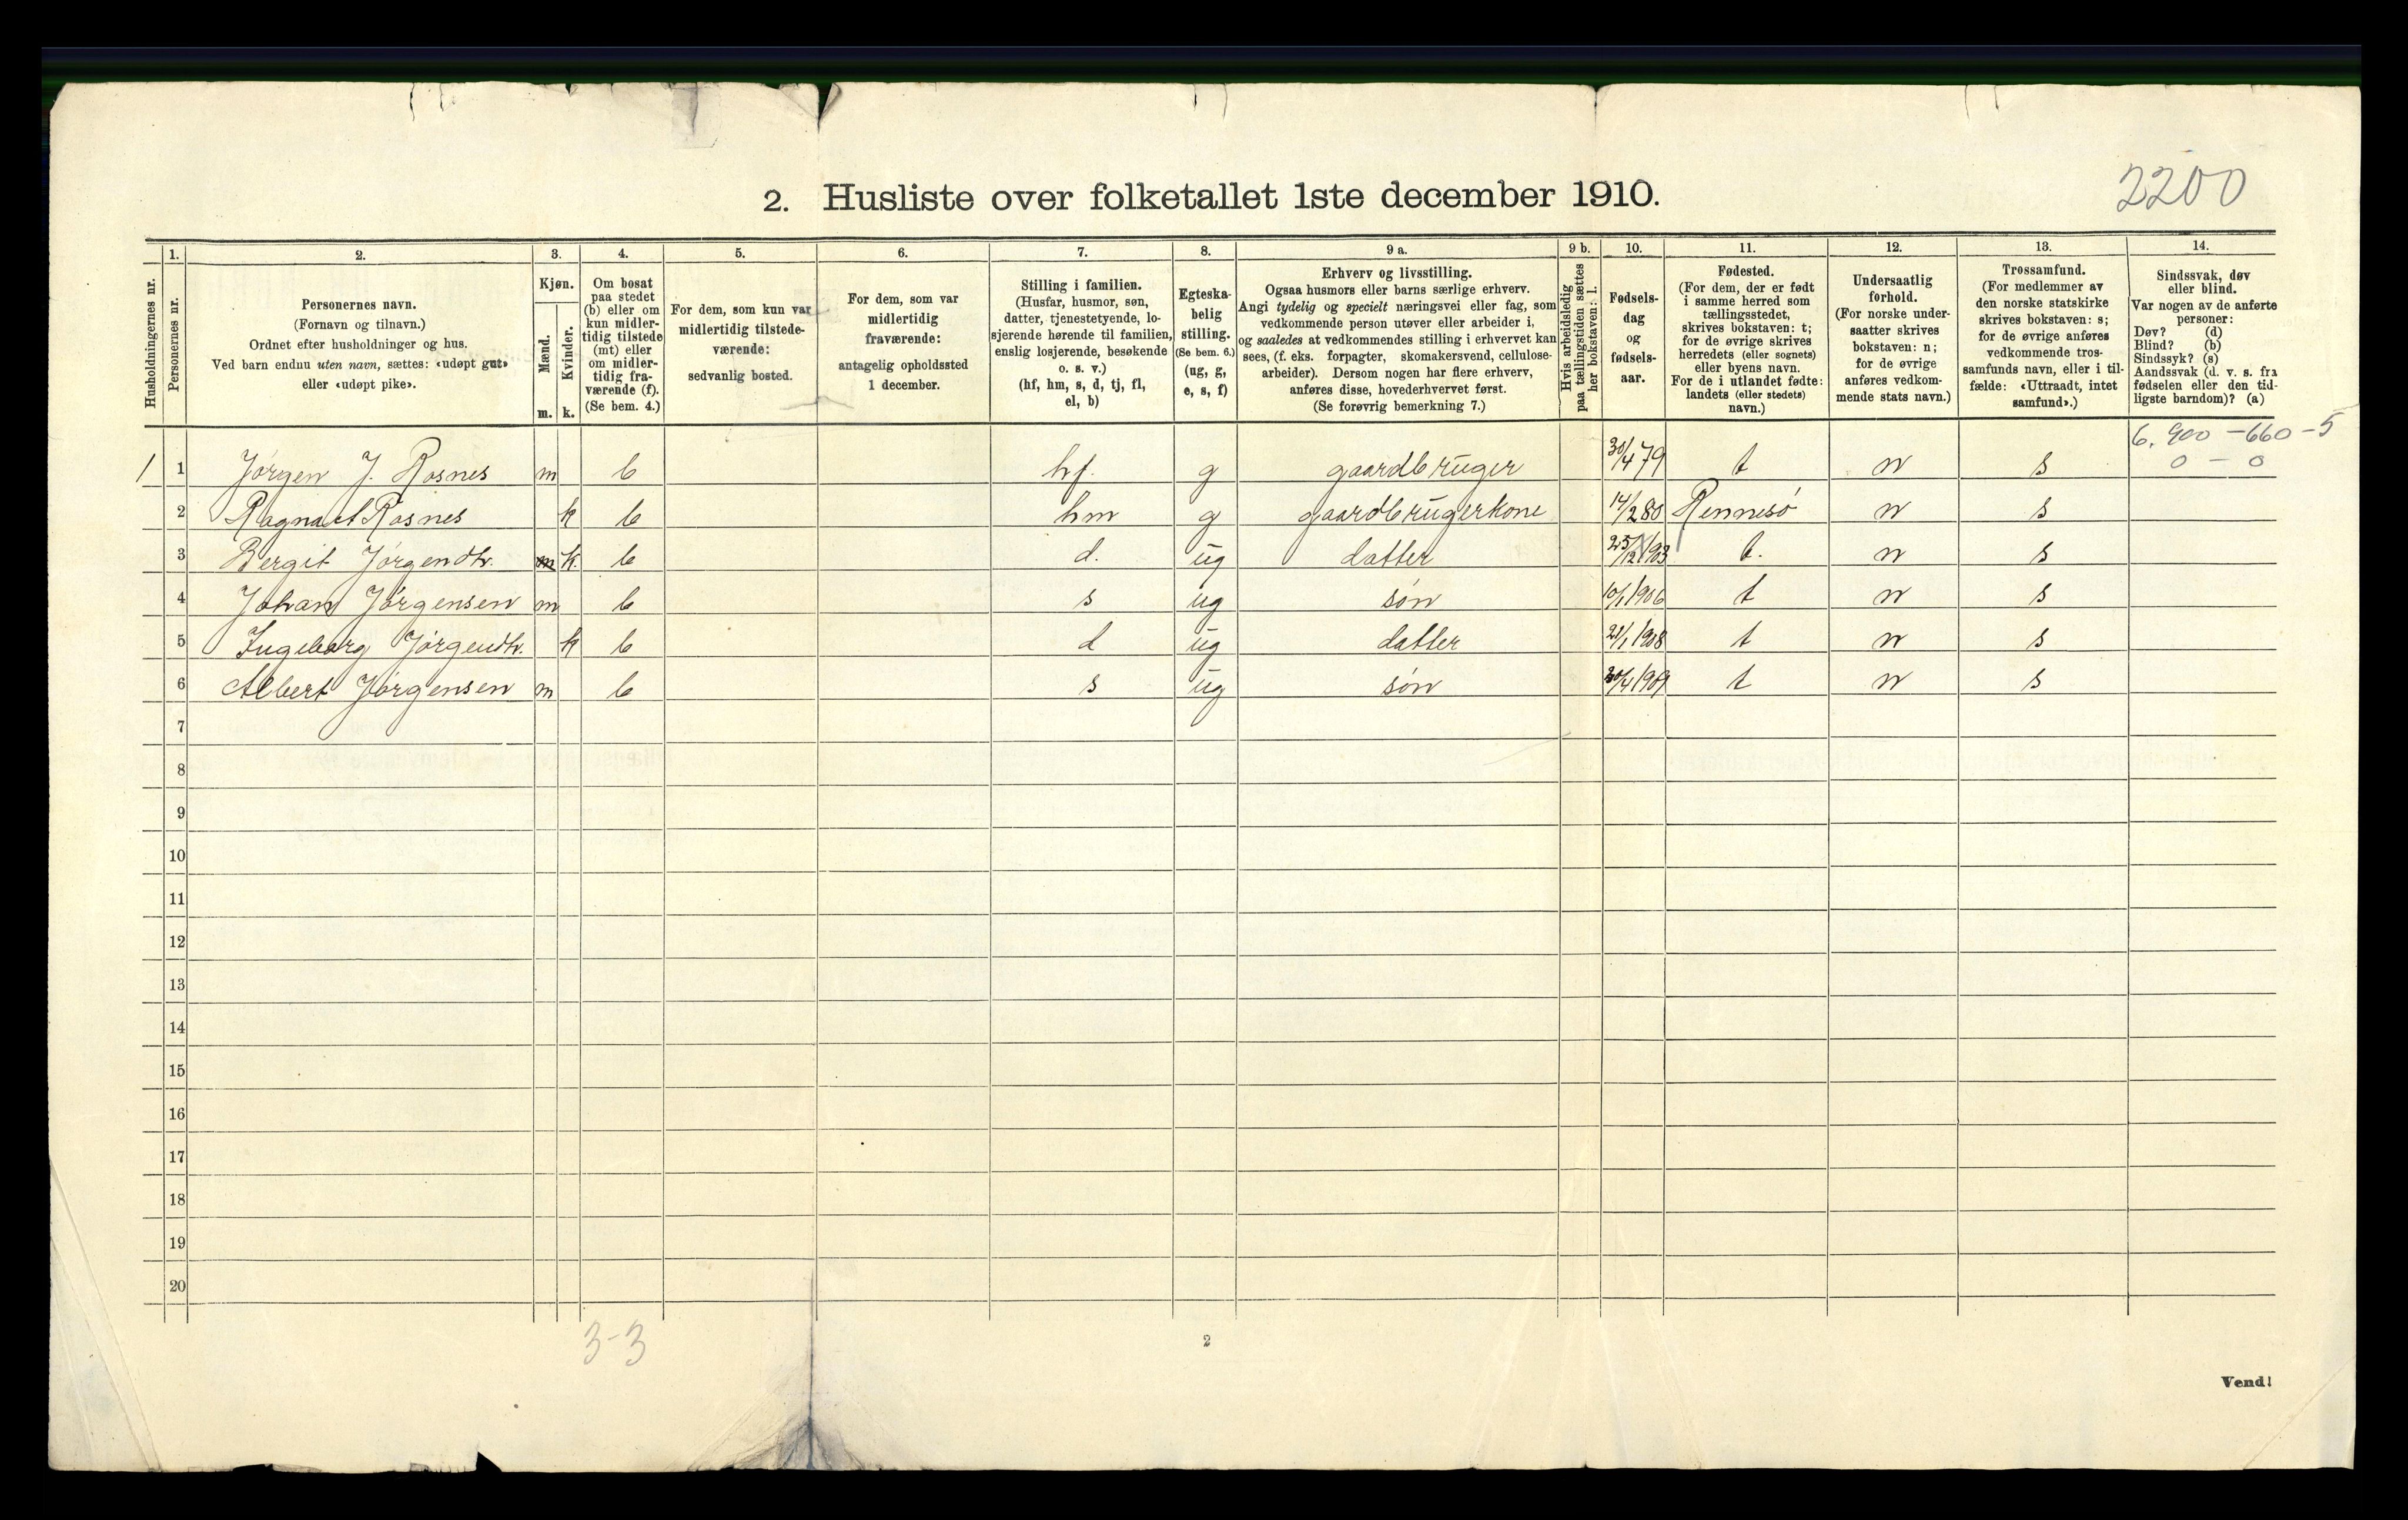 2. Husliste over folketallet 1ste december 1910.
2200
Husholdningernes nr.
1.
Personernes nr.
2.
Personernes navn.
(Fornavn og tilnavn.)
Ordnet efter husholdninger og hus.
Ved barn endnu uten navn, sættes: «udøpt gut»
eller «udøpt pike».
3.
Kjøn.
Mænd.
Kvinder.
m. k.
4.
Om bosat
paa stedet
(b) eller om
kun midler-
tidig tilstede
(mt) eller
om midler-
tidig fra-
værende (f).
(Se bem. 4.)
5.
For dem, som kun var
midlertidig tilstede-
værende:
sedvanlig bosted.
6.
For dem, som var
midlertidig
fraværende:
antagelig opholdssted
1 december.
7.
Stilling i familien.
(Husfar, husmor, søn,
datter, tjenestetyende, lo-
sjerende hørende til familien,
enslig losjerende, besøkende
o. s. v.)
(hf, hm, s, d, tj, fl,
el, b)
8.
Egteska-
belig
stilling.
(Se bem. 6.)
(ug, g,
e, s, f)
9 a.
Erhverv og livsstilling.
Ogsaa husmors eller barns særlige erhverv.
Angi tydelig og specielt næringsvei eller fag, som
vedkommende person utøver eller arbeider i,
og saaledes at vedkommendes stilling i erhvervet kan
sees, (f. eks. forpagter, skomakersvend, cellulose-
arbeider). Dersom nogen har flere erhverv,
anføres disse, hovederhvervet først.
(Se forøvrig bemerkning 7.)
9 b.
Hvis arbeidsledig
paa tællingstiden sættes
her bokstaven: l.
10.
Fødsels-
dag
og
fødsels-
aar.
11.
Fødested.
(For dem, der er født
i samme herred som
tællingsstedet,
skrives bokstaven: t;
for de øvrige skrives
herredets (eller sognets)
eller byens navn.
For de i utlandet fødte:
landets (eller stedets)
navn.)
12.
Undersaatlig
forhold.
(For norske under-
saatter skrives
bokstaven: n;
for de øvrige
anføres vedkom-
mende stats navn.)
13.
Trossamfund.
(For medlemmer av
den norske statskirke
skrives bokstaven: s;
for de øvrige anføres
vedkommende tros-
samfunds navn, eller i til-
fælde: «Uttraadt, intet
samfund».)
14.
Sindssvak, døv
eller blind.
Var nogen av de anførte
personer:
Døv? (d)
Blind? (b)
Sindssyk? (s)
Aandssvak (d. v. s. fra
fødselen eller den tid-
ligste barndom)? (a)
6. 900 - 660 - 5
0 - 0
1 1 Jørgen J. Rosnes m b hf. g gaardbruger 30/4 79 t n s
2 Ragna Rosnes k b hm g gaardbrugerkone 14/2 80 Rennesø n s
3 Bergit Jørgendtr. m k. b d. ug datter 25/12 1903 t. n s
4 Johan Jørgensen m b s ug søn 10/1 1906 t n s
5 Ingeborg Jørgendtr. k b d ug datter 21/1 1908 t n s
6 Albert Jørgensen m b s ug søn 20/4 1909 t n s
7
8
9
10
11
12
13
14
15
16
17
18
19
20
3-3
2
Vend!